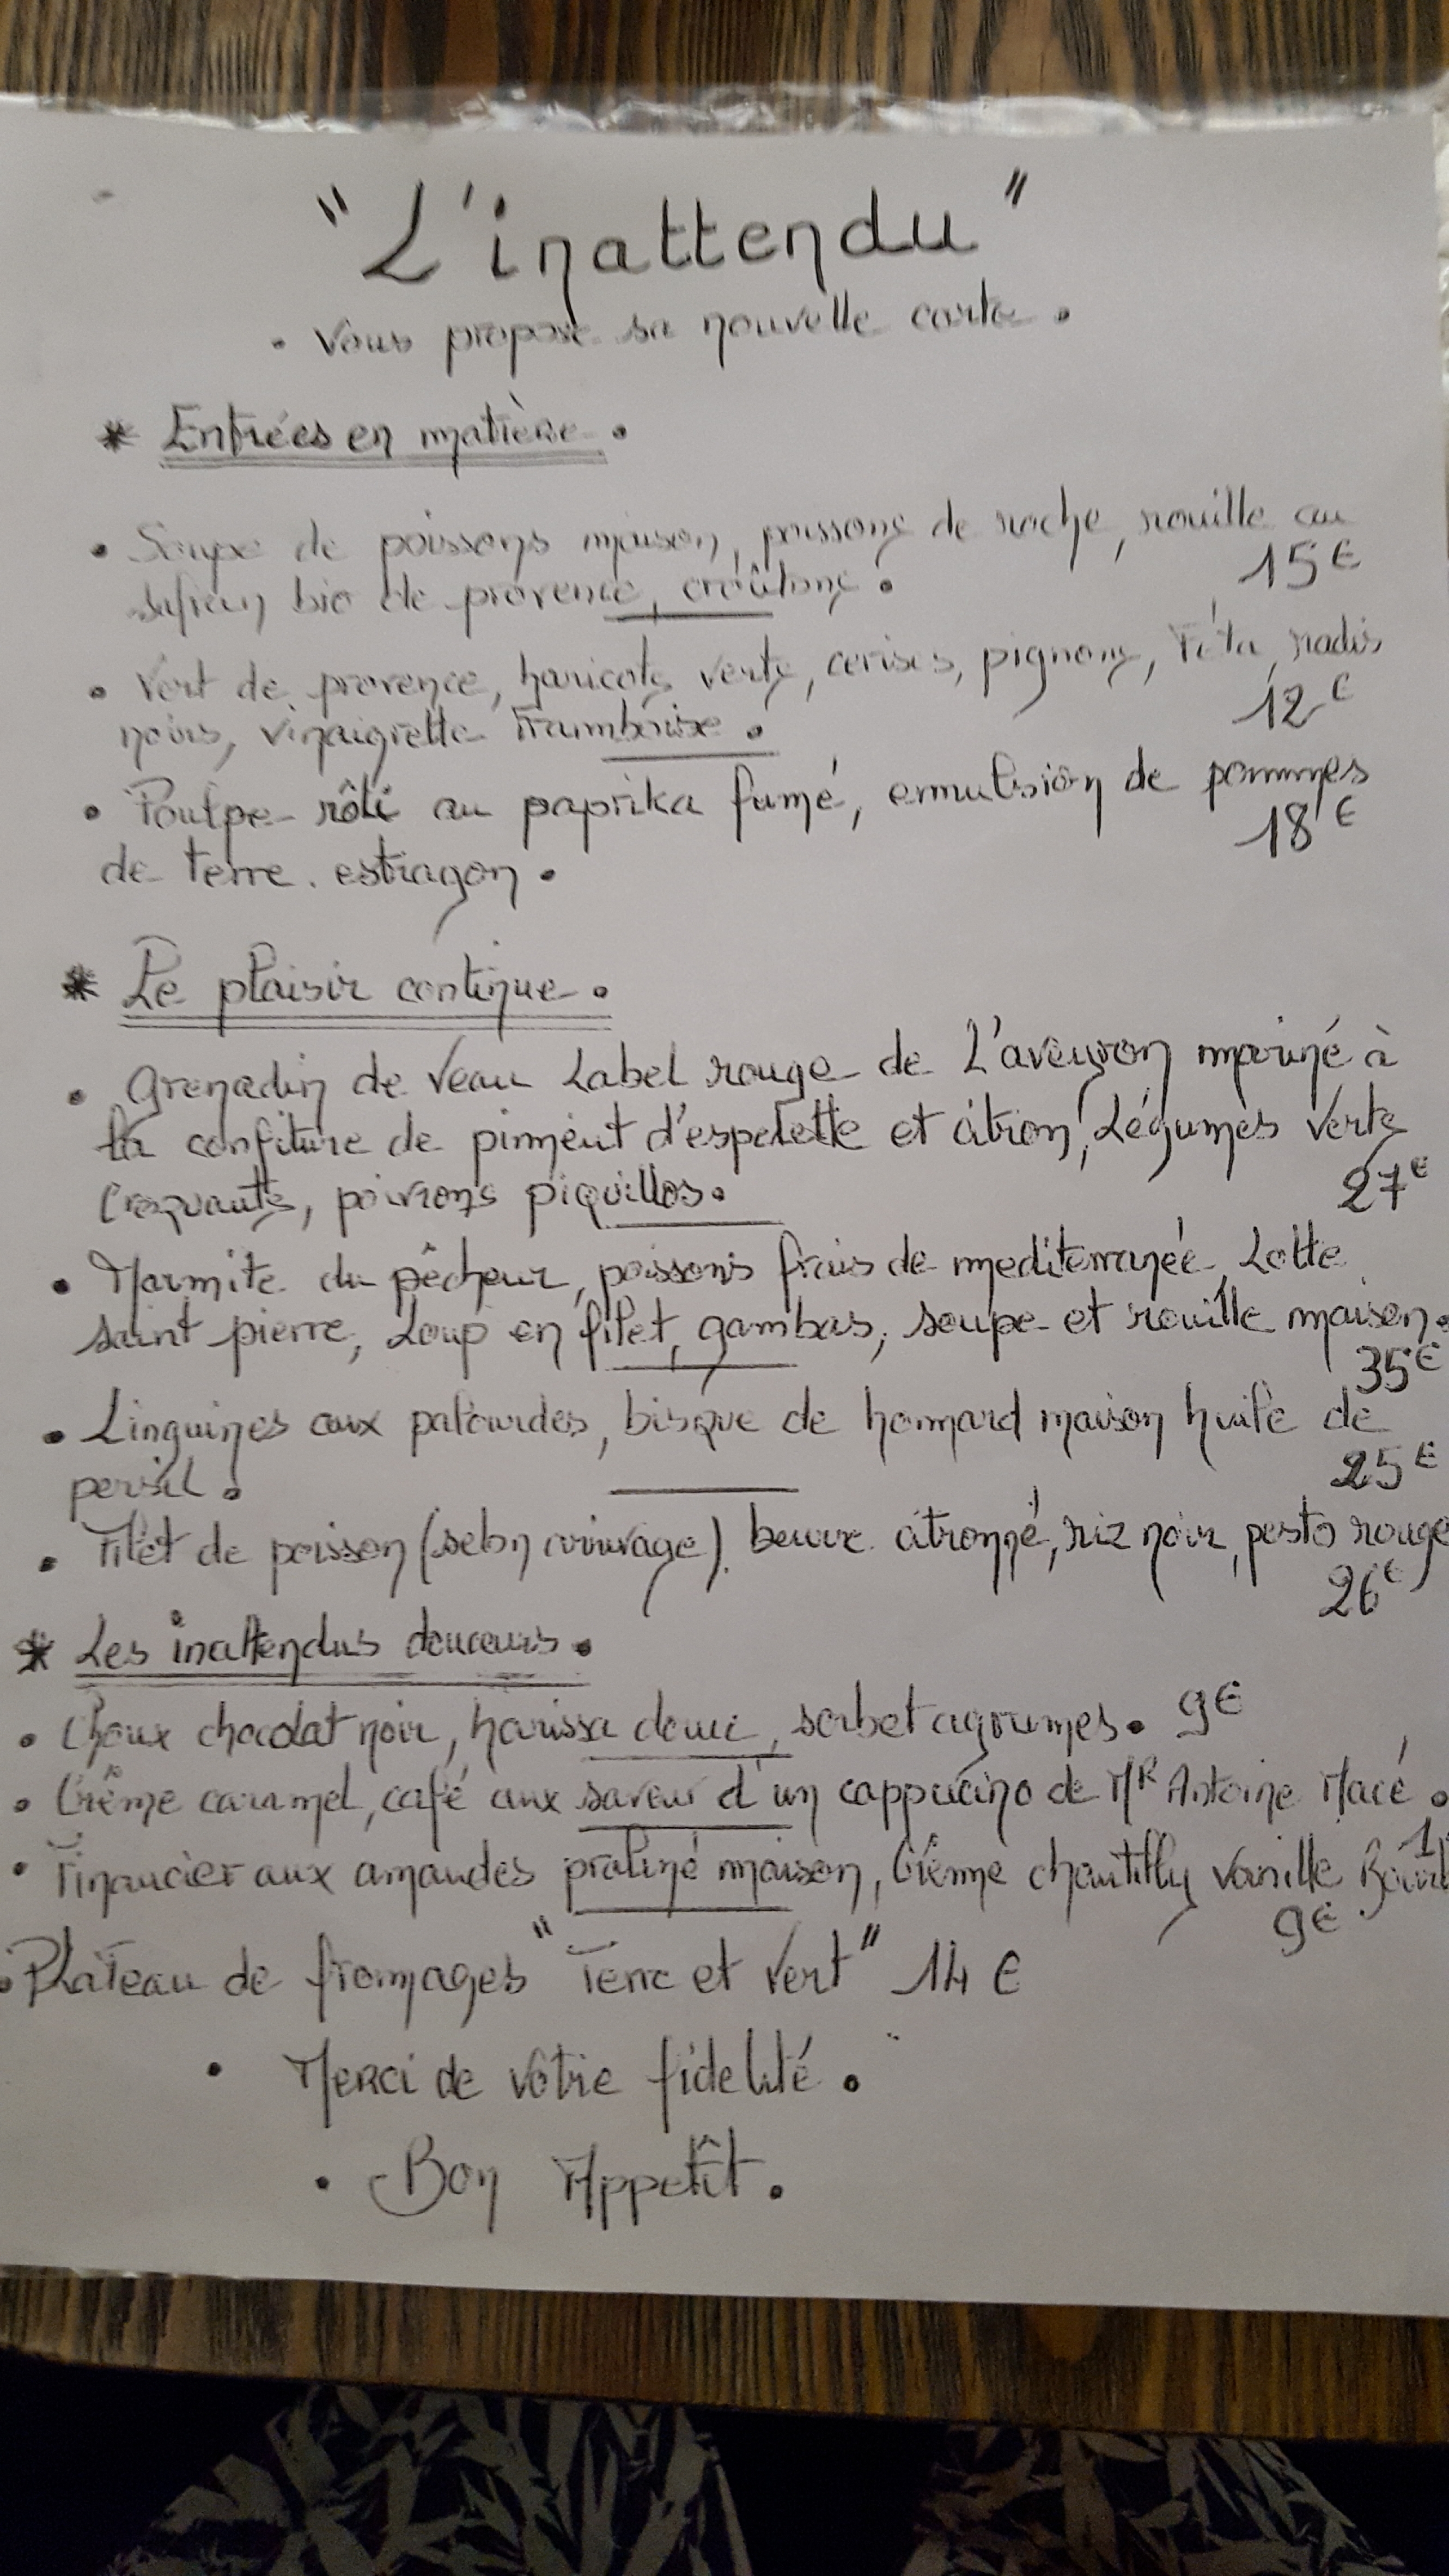 "L'inattendu"
• Vous propose sa nouvelle carte •
* Entrées en matière •
• Soupe de poissons maison, poissons de roche, rouille au
safran bio de provence, croûtons • 15€
• Vert de provence, haricots verts, cerises, pignons, Féta, radis
noirs, vinaigrette Framboise • 12€
• Poulpe rôti au paprika fumé, emulsion de pommes
de terre. estragon • 18€
* Le plaisir continue •
• Grenadin de Veau Label rouge de L'aveyron mariné à
la confiture de piment d'espelette et citron, Légumes verts
Croquants, poivrons piquillos. 27€
• Marmite du pêcheur, poissons frais de mediterranée, Lotte
saint pierre, Loup en filet, gambas, soupe et rouille maison.
35€
• Linguines aux palourdes, bisque de hommard maison huile de
persil • 25€
• Filet de poisson (selon arrivage). beurre citronné, riz noir, pesto rouge
26€
* Les inattendus douceurs •
• Choux chocolat noir, harissa douce, sorbet agrumes • 9€
• Crême caramel, café aux saveur d'un cappucino de MR Antoine Macé •
• Financier aux amandes praliné maison, Crême chantilly vanille
9€
• Plateau de fromages "Terre et Vert" 14€
• Merci de votre fidelité •
• Bon Appetît •